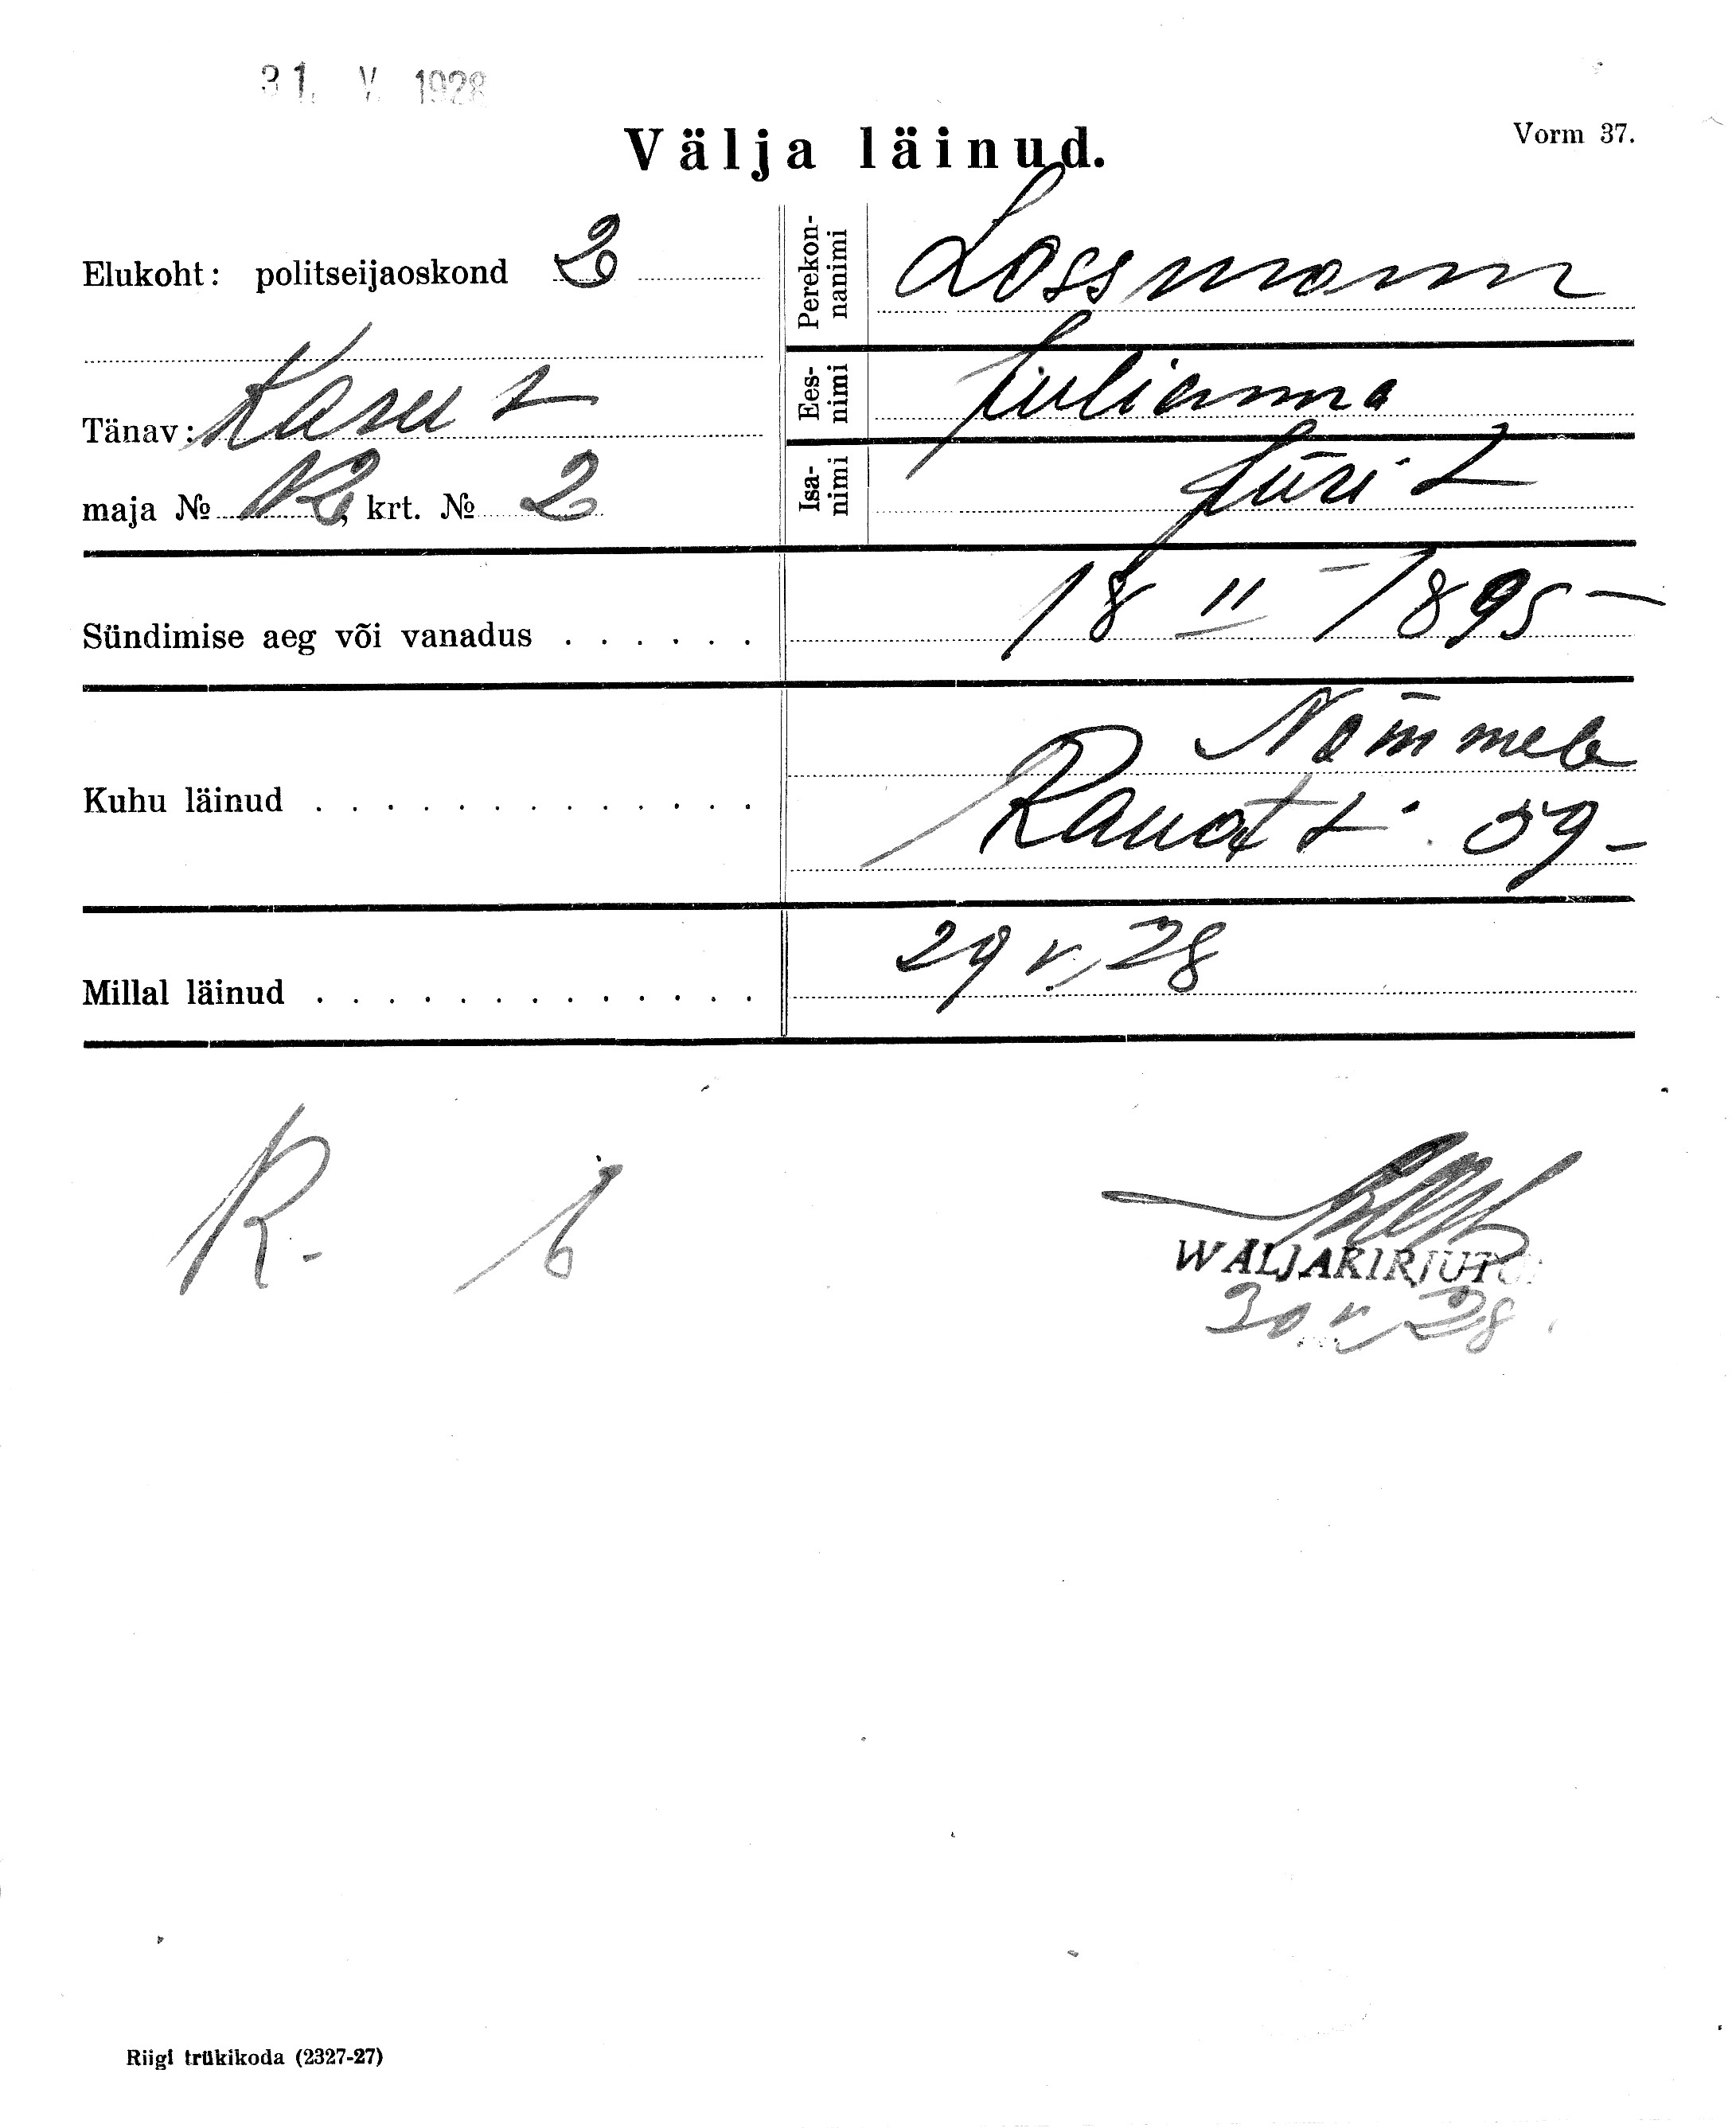 31. V. 1928
Välja läinud.
Vorm 37.
Elukoht: politseijaoskond 2
Tänav: Karu t
maja № 12, krt. № 2
Perekon-
nanimi
Lossmann
Ees-
nimi
Julianna
Isa-
nimi
Jüri t
Sündimise aeg või vanadus . . . . . .
18 II 1895 –
Kuhu läinud . . . . . . . . . . . . .
Nõmmele
Raua t. 59 –
Millal läinud . . . . . . . . . . . . .
29 V. 28
R.
WALJAKIRJUT
30. V. 28
Riigi trükikoda (2327-27)